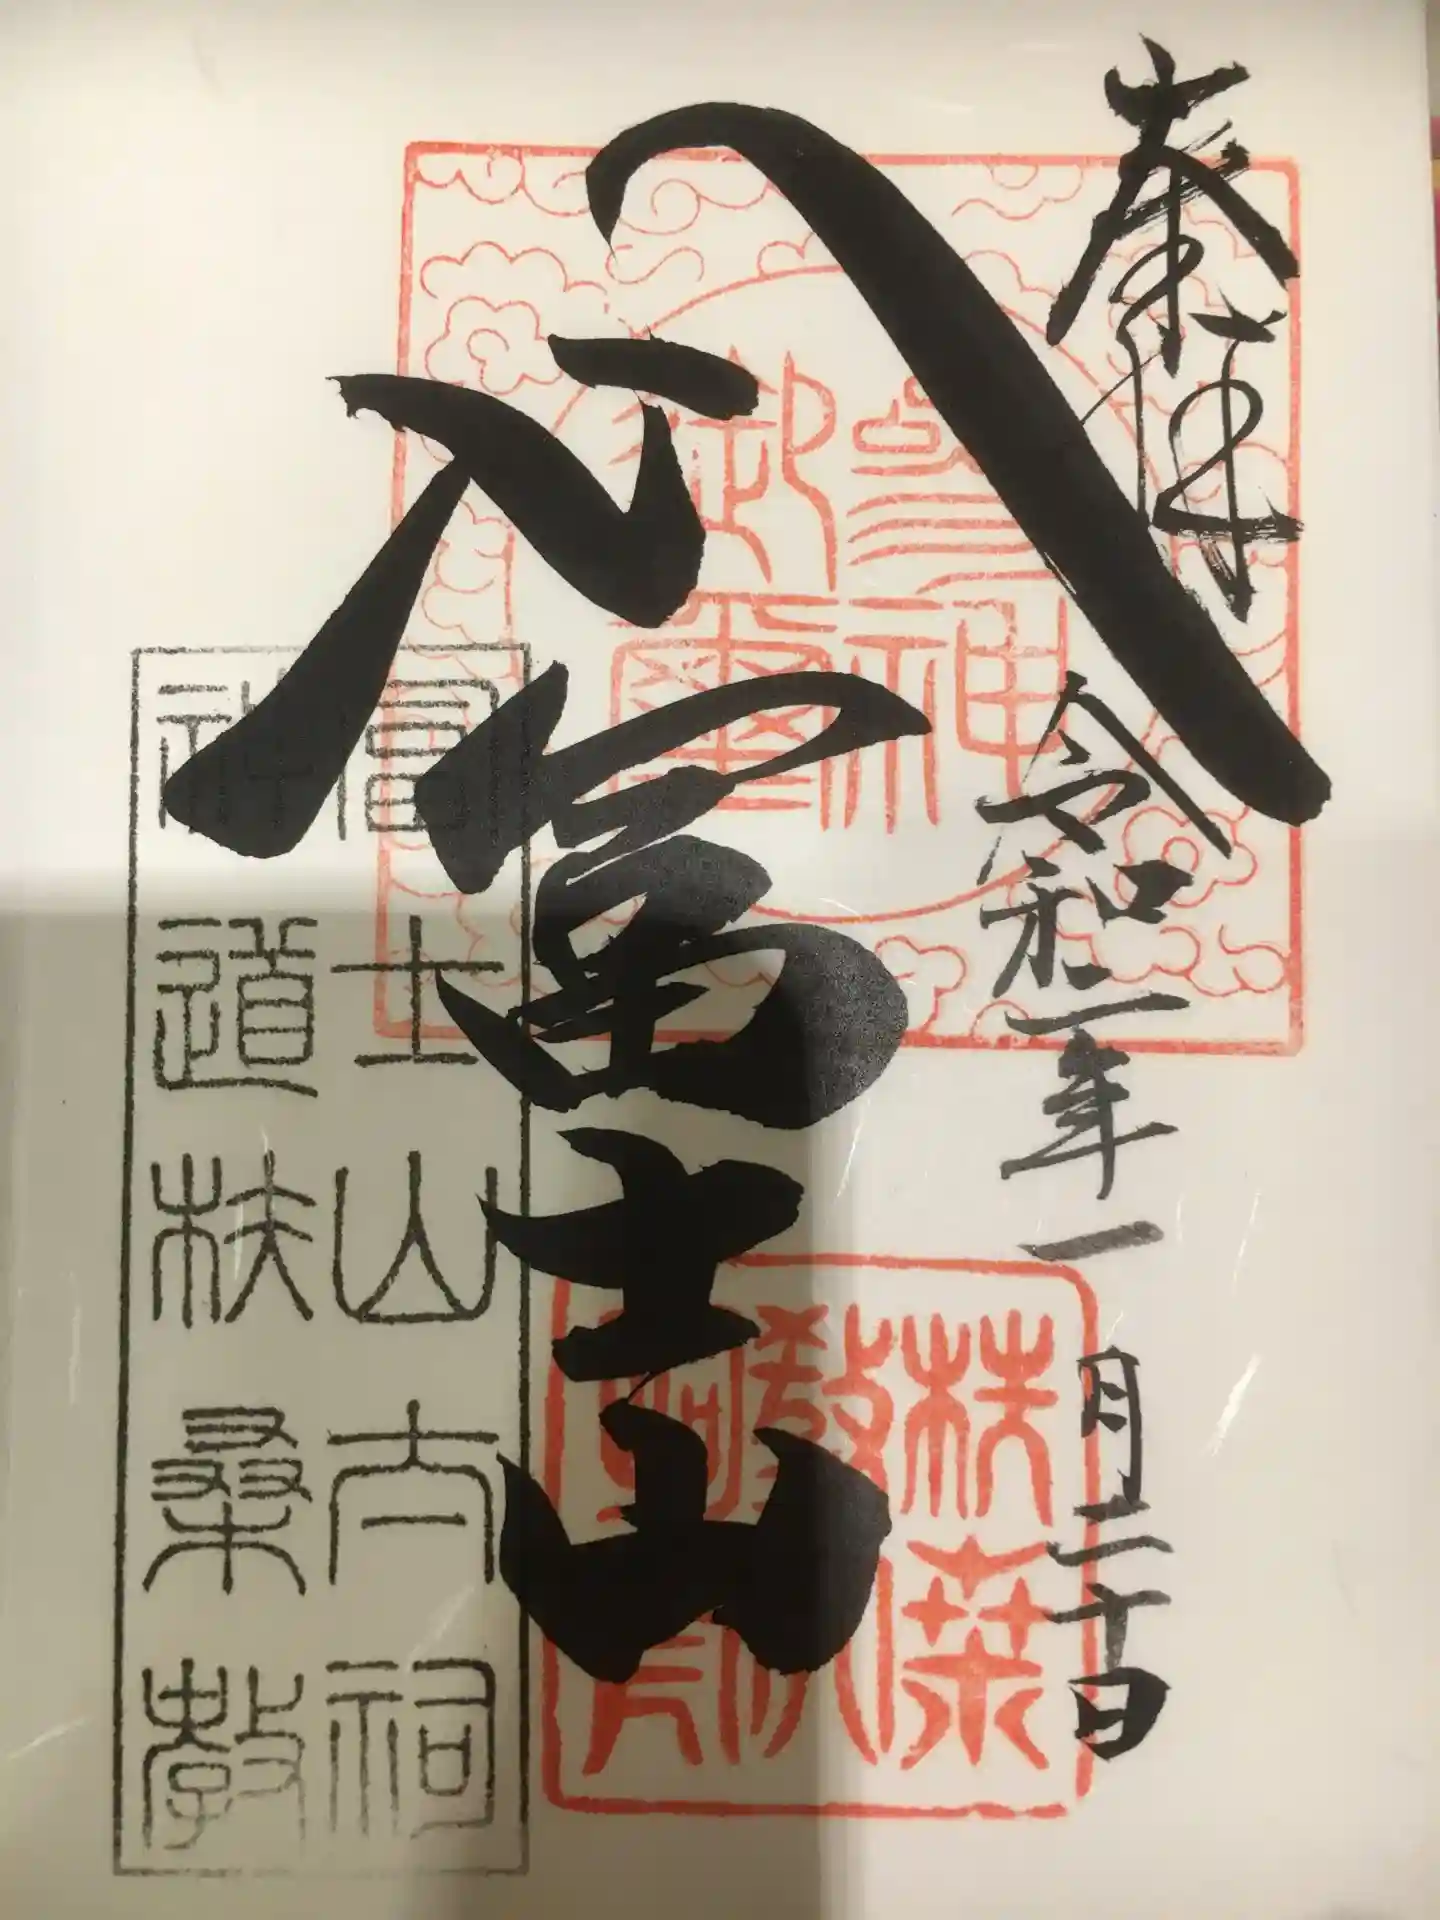 奉拝
令和二年一月二十日
冨士山
參神
御璽
扶桑
教
富士山大祠
神道扶桑教